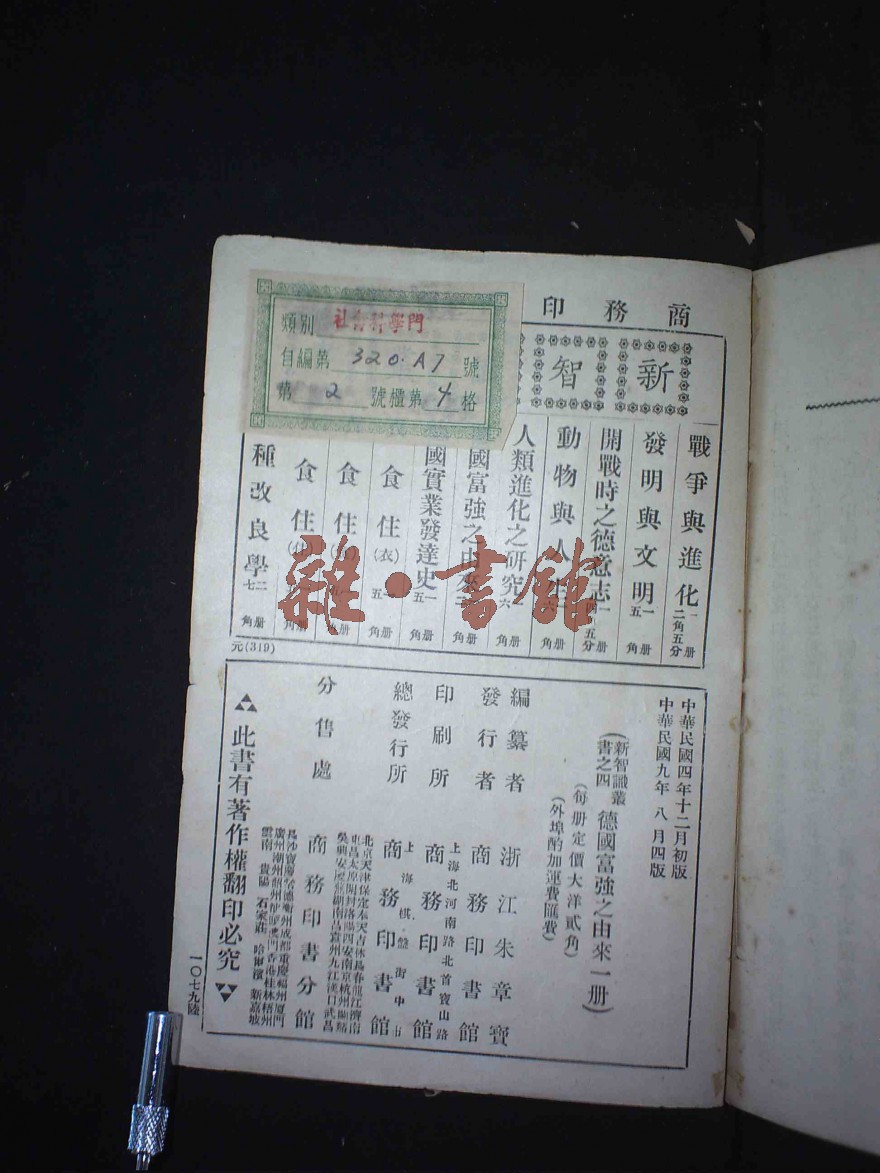 商務印
新智
類別 社會科學門
自編第 320.A7 號
第 2 號櫃第 4 格
戰爭與進化 一册 二角五分
發明與文明 一册 五角
開戰時之德意志 一册 四角五分
動物與人生 一册 六角
人類進化之研究 一册 六角
國富強之由來 一册 二角
國實業發達史 一册 五角
食住(衣) 一册 五角
食住 册 角
食住 册 角
種改良學 二册 七角
元(319)
雜·書館
中華民國四年十二月初版
中華民國九年八月四版
(新智識叢書之四 德國富強之由來一册)
(每册定價大洋貳角)
(外埠酌加運費匯費)
編纂者 浙江朱章寶
發行者 商務印書館
上海北河南路北首寶山路
印刷所 商務印書館
上海棋盤街中市
總發行所 商務印書館
北京天津保定奉天吉林長春龍江濟南
東昌太原開封洛陽西安南京杭州蘭谿
吳興安慶蕪湖南昌袁州九江漢口武昌
分售處 商務印書分館
長沙寶慶常德衡州成都重慶福州厦門
廣州潮州韶州澳門香港桂林梧州
雲南 貴陽 石家莊 哈爾濱 新嘉坡
此書有著作權翻印必究
一〇七九陸